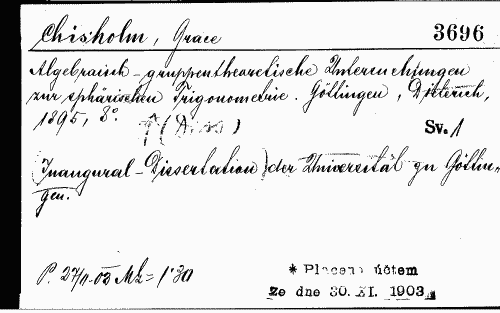 Chisholm, Grace 3696
Algebraisch-gruppentheoretische Untersuchungen
zur sphärischen Trigonometrie. Göttingen, Dieterich,
1895, 8°. (Diss) Sv. 1
(Inaugural-Dissertation) der Universität zu Göttin-
gen.
Mk = 1'30
* Placeno účtem
ze dne 30. XI. 1903